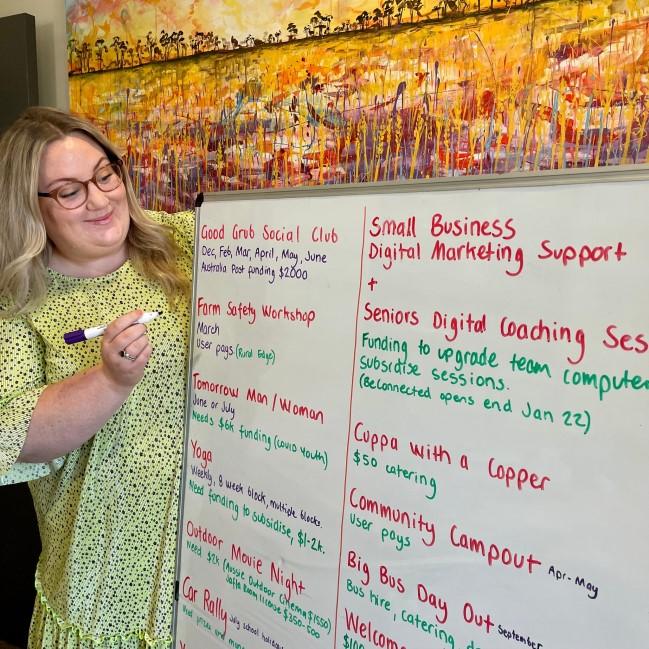 Good Grub Social Club
Dec, Feb, Mar, April, May, June
Australia Post funding $2000
Farm Safety Workshop
March
User pays (Rural Edge)
Tomorrow Man / Woman
June or July
Needs $6k funding (COVID Youth)
Yoga
Weekly, 8 week block, multiple blocks.
Need funding to subsidise, $1-2k.
Outdoor Movie Night
Need $2k (Aussie Outdoor Cinema $1550)
Jaffa Room license $350-500
Car Rally July school holidays
Small Business
Digital Marketing Support
+
Seniors Digital Coaching Ses
Funding to upgrade team compute
Subsidise sessions.
(BeConnected opens end Jan 22)
Cuppa with a Copper
$50 catering
Community Campout Apr-May
User pays
Big Bus Day Out September
Bus hire, catering
Welcome
$100